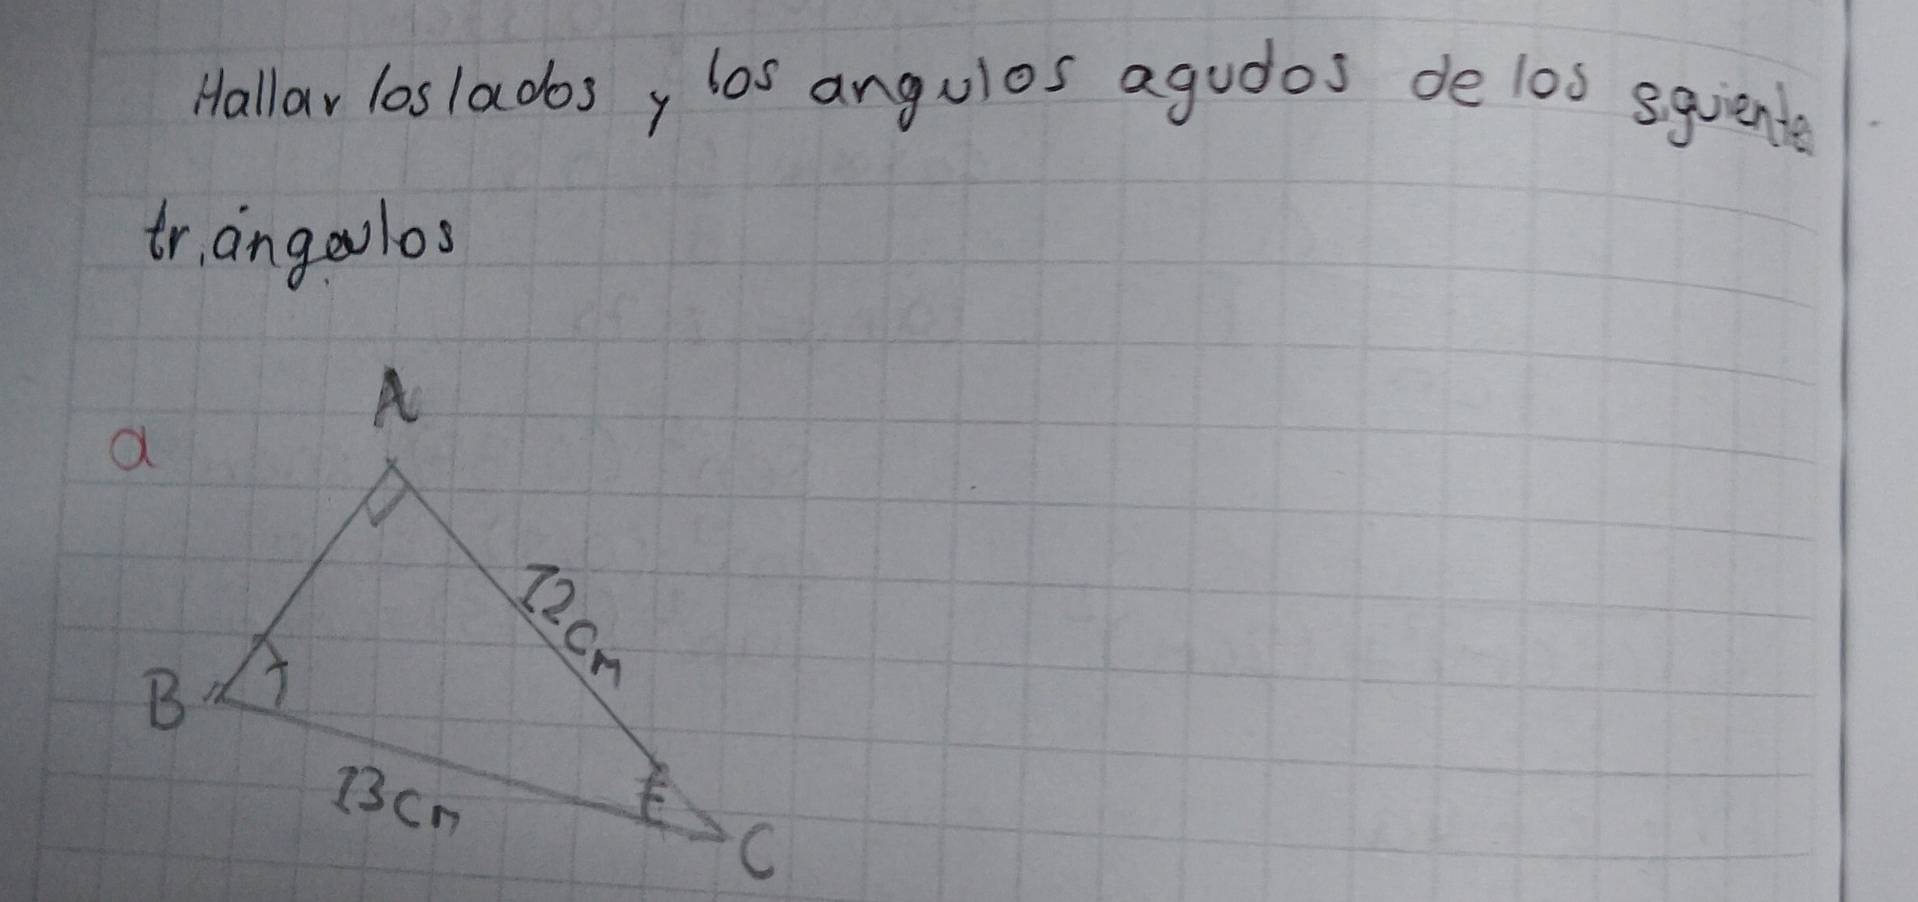 Hallar los lados y los angulos agudos de los siguiente
triángulos
a
A
12cm
B
13cm
C